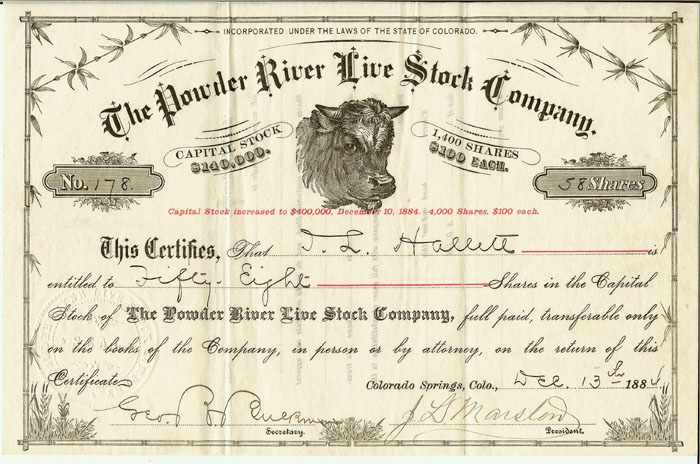 INCORPORATED UNDER THE LAWS OF THE STATE OF COLORADO.
The Powder River Live Stock Company.
CAPITAL STOCK
$140,000.
1,400 SHARES
$100 EACH.
No. 178.
58 Shares
Capital Stock increased to $400,000, December 10, 1884. 4,000 Shares. $100 each.
This Certifies, That T. L. Hallett is
entitled to Fifty-Eight Shares in the Capital
Stock of The Powder River Live Stock Company, full paid, transferable only
on the books of the Company, in person or by attorney, on the return of this
Certificate
Colorado Springs, Colo., Dec. 13th 1884.
Geo.
J L Marston
Secretary.
President.